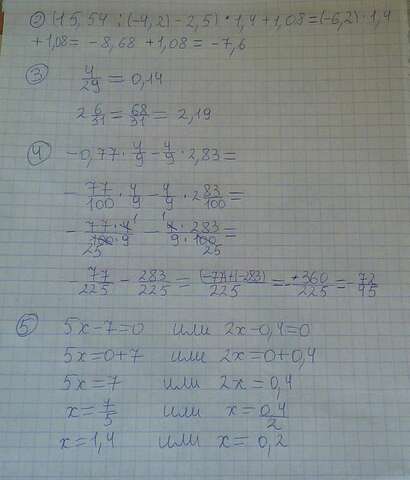 ② (15,54 : (-4,2) - 2,5) · 1,4 + 1,08 = (-6,2) · 1,4
+ 1,08 = -8,68 + 1,08 = -7,6
③ 4/29 = 0,14
2 6/31 = 68/31 = 2,19
④ -0,77 · 4/9 - 4/9 · 2,83 =
- 77/100 · 4/9 - 4/9 · 2 83/100 =
- 77 · 4 1/100 · 9 25 - 1 4 · 283/9 · 100 25 =
- 77/225 - 283/225 = (-77)+(-283)/225 = - +360/225 = - 72/45
⑤ 5x - 7 = 0 или 2x - 0,4 = 0
5x = 0 + 7 или 2x = 0 + 0,4
5x = 7 или 2x = 0,4
x = 7/5 или x = 0,4/2
x = 1,4 или x = 0,2